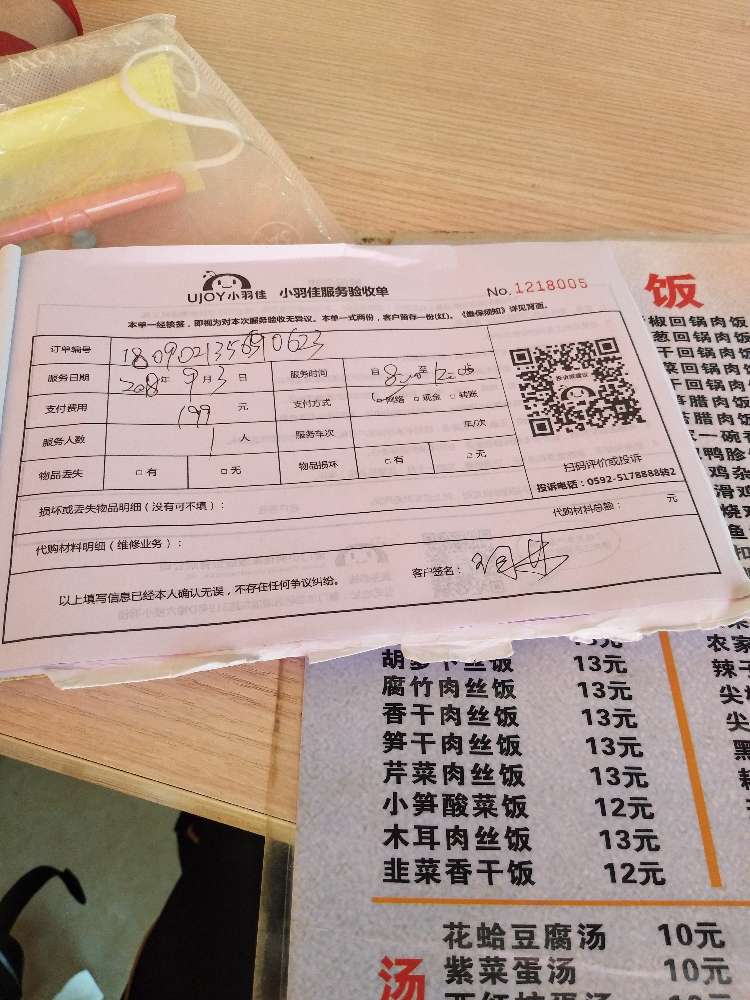 UJOY小羽佳 小羽佳服务验收单
No.1218005
本单一经接签，即视为对本次服务验收无异议。本单一式两份，客户留存一份(红)。《维保须知》详见背面。
订单编号
服务日期 2018年 9月3日 服务时间 自 至
支付费用 199 元 支付方式 网络 □现金 □转账
服务人数 1 人 服务车次 车/次
物品丢失 □有 □无 物品损坏 □有 □无
扫码评价或投诉
投诉电话：0592-5178888转2
损坏或丢失物品明细（没有可不填）：
代购材料明细（维修业务）： 代购材料总额： 元
以上填写信息已经本人确认无误，不存在任何争议纠纷。 客户签名：
饭
椒回锅肉饭
葱回锅肉饭
干回锅肉饭
菜回锅肉饭
干回锅肉饭
腊肉饭
一碗
鸡杂
滑鸡
烧鸡
鱼
扣
农家
辣子
尖
尖
黑
胡萝卜丝饭 13元
腐竹肉丝饭 13元
香干肉丝饭 13元
笋干肉丝饭 13元
芹菜肉丝饭 13元
小笋酸菜饭 12元
木耳肉丝饭 13元
韭菜香干饭 12元
汤
花蛤豆腐汤 10元
紫菜蛋汤 10元